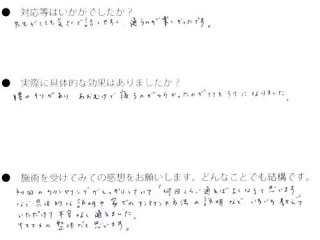 ● 対応等はいかがでしたか?
先生がとても気さくで話しやすく、通うのが楽しかったです。
● 実際に具体的な効果はありましたか?
腰のそりがあり、あおむけで寝るのがつらかったのがとてもラクになりました。
● 施術を受けてみての感想をお願いします。どんなことでも結構です。
初回のカウンセリングがしっかりしていて「何回くらい通えばよくなると思います」
など具体的な説明や家でのメンテナンス方法の説明など いろいろ教えて
いただけて不安なく通えました。
オススメの整体だと思います。